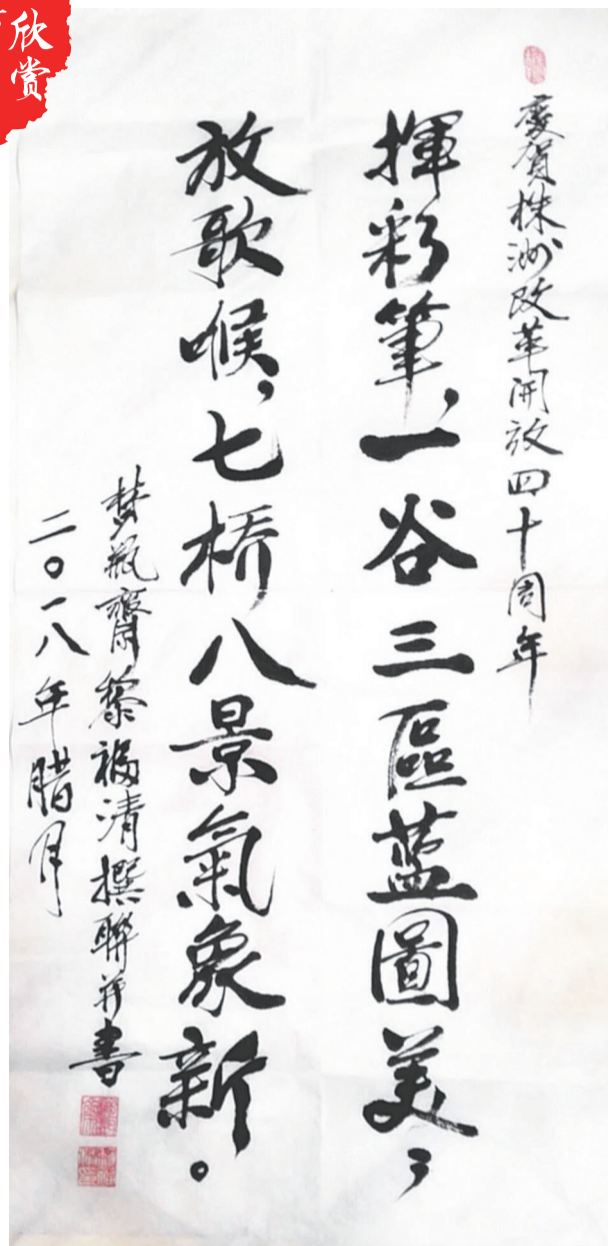 欣賞
慶賀株洲改革開放四十周年
揮彩筆，一谷三區藍圖美，
放歌喉，七桥八景氣象新。
梦瓶齋黎福清撰聯并書
二〇一八年腊月